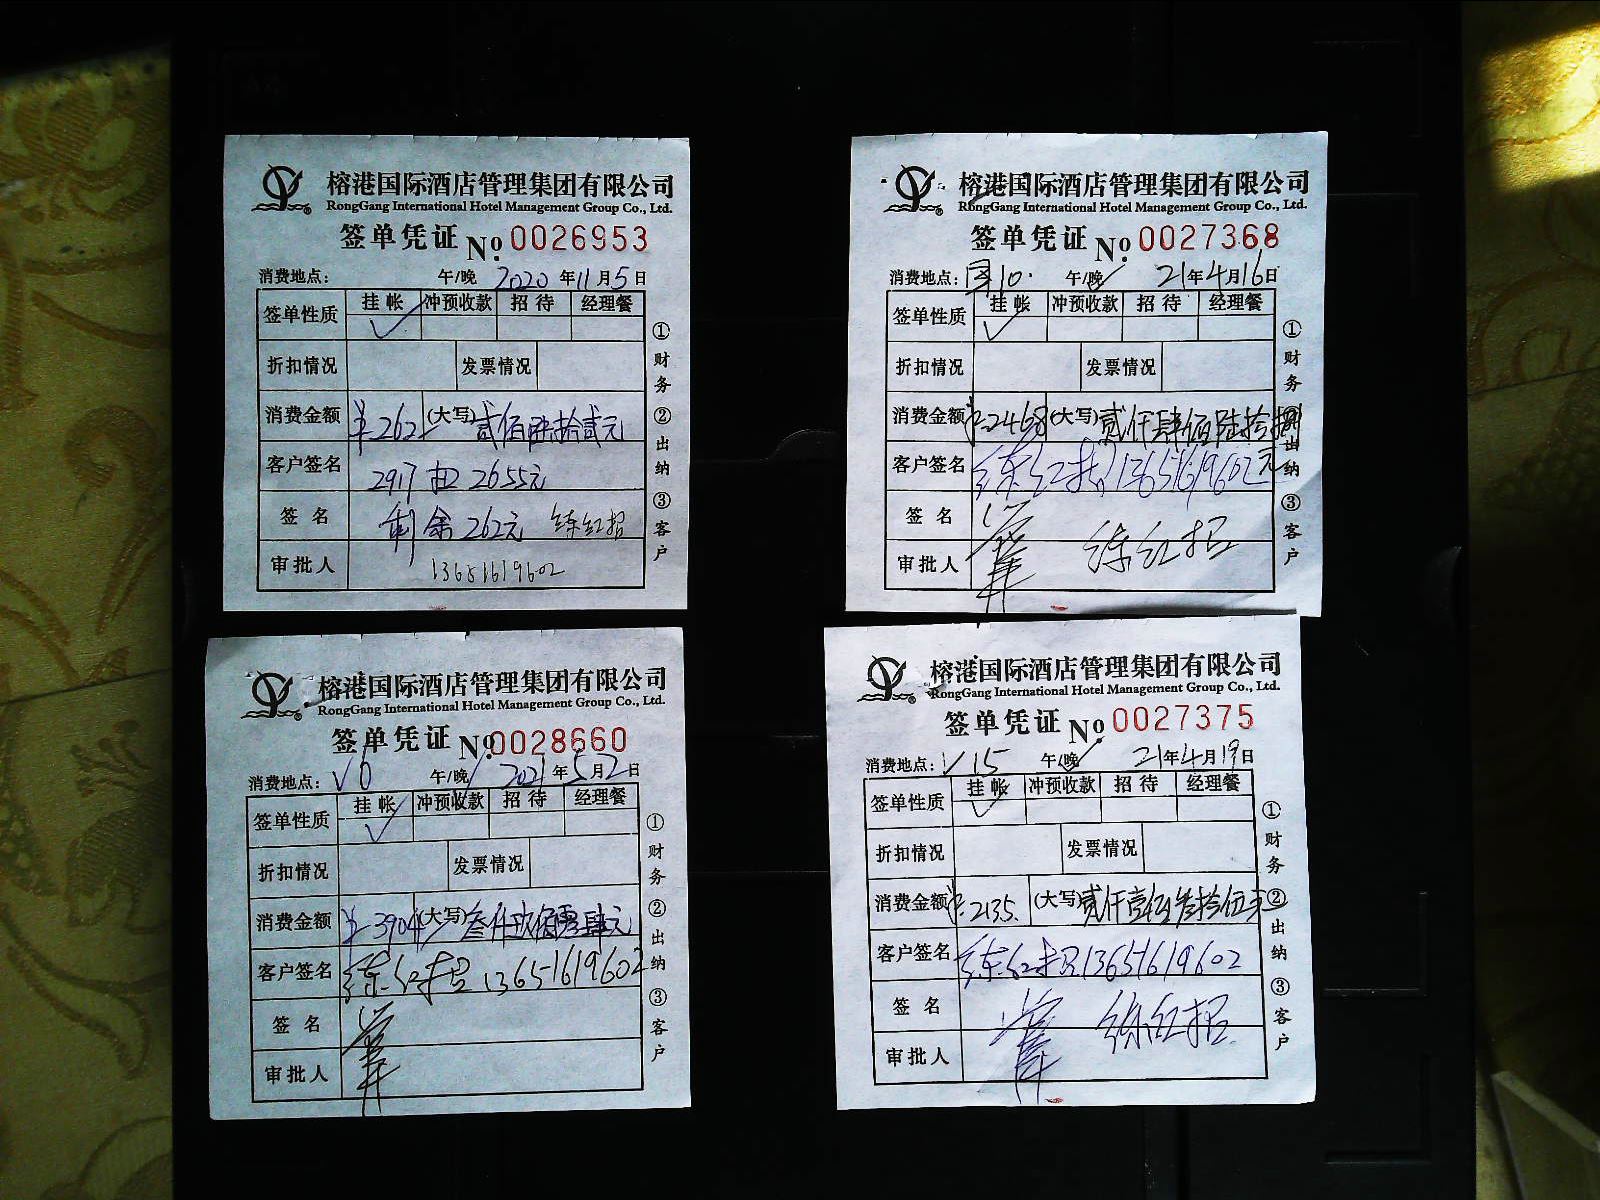 榕港国际酒店管理集团有限公司
RongGang International Hotel Management Group Co., Ltd.
签单凭证 No. 0026953
消费地点: 午/晚 2020年11月5日
签单性质 挂帐 冲预收款 招待 经理餐
✓
折扣情况 发票情况
消费金额 ¥262 (大写) 贰佰陆拾贰元
客户签名 2917扣2655元
签名 剩余262元 练红招
审批人 13651619602
①财务 ②出纳 ③客户
榕港国际酒店管理集团有限公司
RongGang International Hotel Management Group Co., Ltd.
签单凭证 No. 0027368
消费地点: 10. 午/晚✓ 21年4月16日
签单性质 挂帐 冲预收款 招待 经理餐
✓
折扣情况 发票情况
消费金额 ¥2468 (大写) 贰仟肆佰陆拾捌元
客户签名 练红招 13651619602
签名
审批人 练红招
①财务 ②出纳 ③客户
榕港国际酒店管理集团有限公司
RongGang International Hotel Management Group Co., Ltd.
签单凭证 No. 0028660
消费地点: V0 午/晚✓ 2021年5月2日
签单性质 挂帐 冲预收款 招待 经理餐
✓
折扣情况 发票情况
消费金额 ¥3904 (大写) 叁仟玖佰零肆元
客户签名 练红招 13651619602
签名
审批人
①财务 ②出纳 ③客户
榕港国际酒店管理集团有限公司
RongGang International Hotel Management Group Co., Ltd.
签单凭证 No. 0027375
消费地点: V15 午/晚✓ 21年4月19日
签单性质 挂帐 冲预收款 招待 经理餐
✓
折扣情况 发票情况
消费金额 ¥2135. (大写) 贰仟壹佰叁拾伍元
客户签名 练红招 13651619602
签名 练红招
审批人
①财务 ②出纳 ③客户